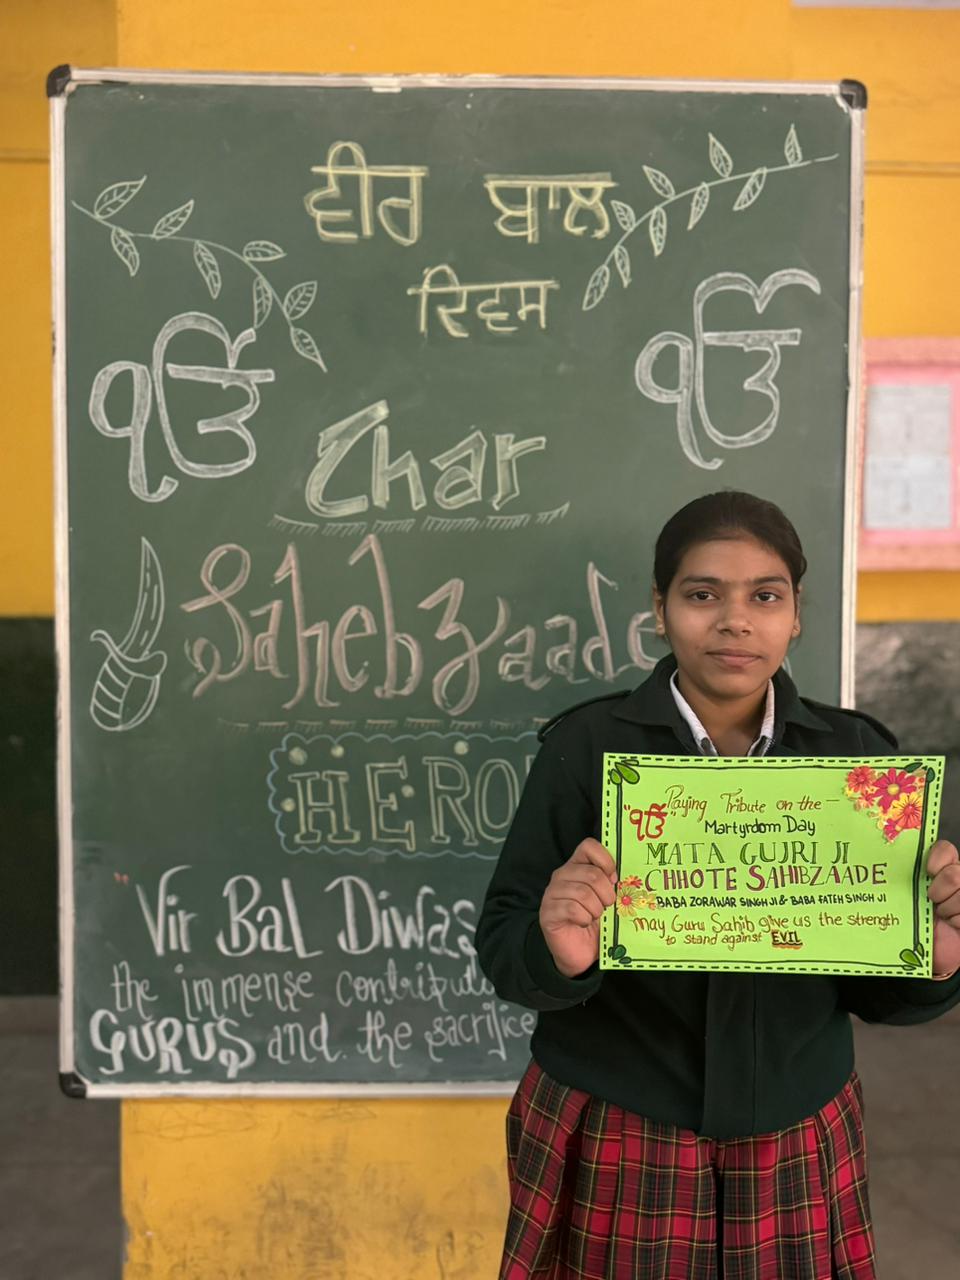 ਵੀਰ ਬਾਲ
ਦਿਵਸ
ੴ
ੴ
Char
Sahebzaade
HERO
"Vir Bal Diwas
the immense
GURUS and. the sacrifice
Paying Tribute on the —
"ੴ"
Martyrdom Day
MATA GUJRI JI
CHHOTE SAHIBZAADE
BABA ZORAWAR SINGH JI & BABA FATEH SINGH JI
May Guru Sahib give us the strength
to stand against EVIL